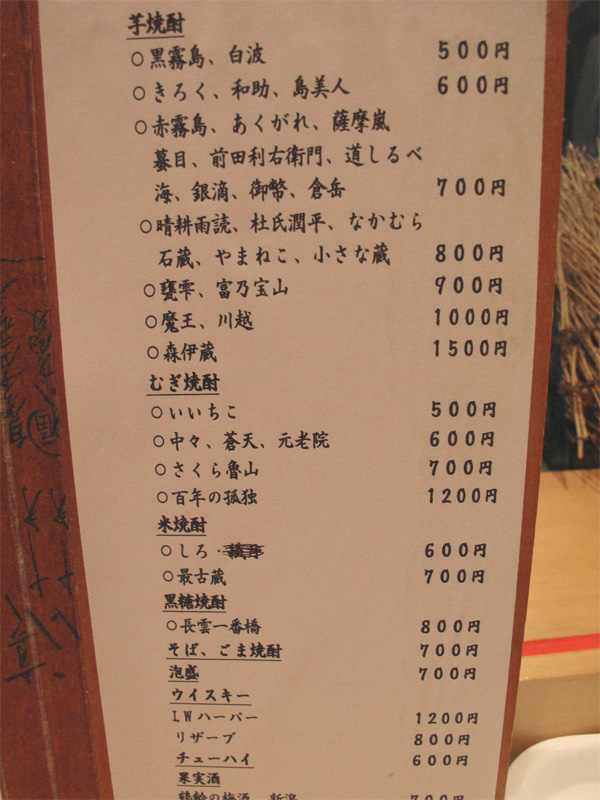 芋焼酎
○黒霧島、白波 500円
○きろく、和助、島美人 600円
○赤霧島、あくがれ、薩摩嵐
蟇目、前田利右衛門、道しるべ
海、銀滴、御幣、倉岳 700円
○晴耕雨読、杜氏潤平、なかむら
石蔵、やまねこ、小さな蔵 800円
○甕雫、富乃宝山 900円
○魔王、川越 1000円
○森伊蔵 1500円
むぎ焼酎
○いいちこ 500円
○中々、蒼天、元老院 600円
○さくら魯山 700円
○百年の孤独 1200円
米焼酎
○しろ・ 600円
○最古蔵 700円
黒糖焼酎
○長雲一番橋 800円
そば、ごま焼酎 700円
泡盛 700円
ウイスキー
I.Wハーパー 1200円
リザーブ 800円
チューハイ 600円
果実酒
鶴齢の梅酒 新潟 700円